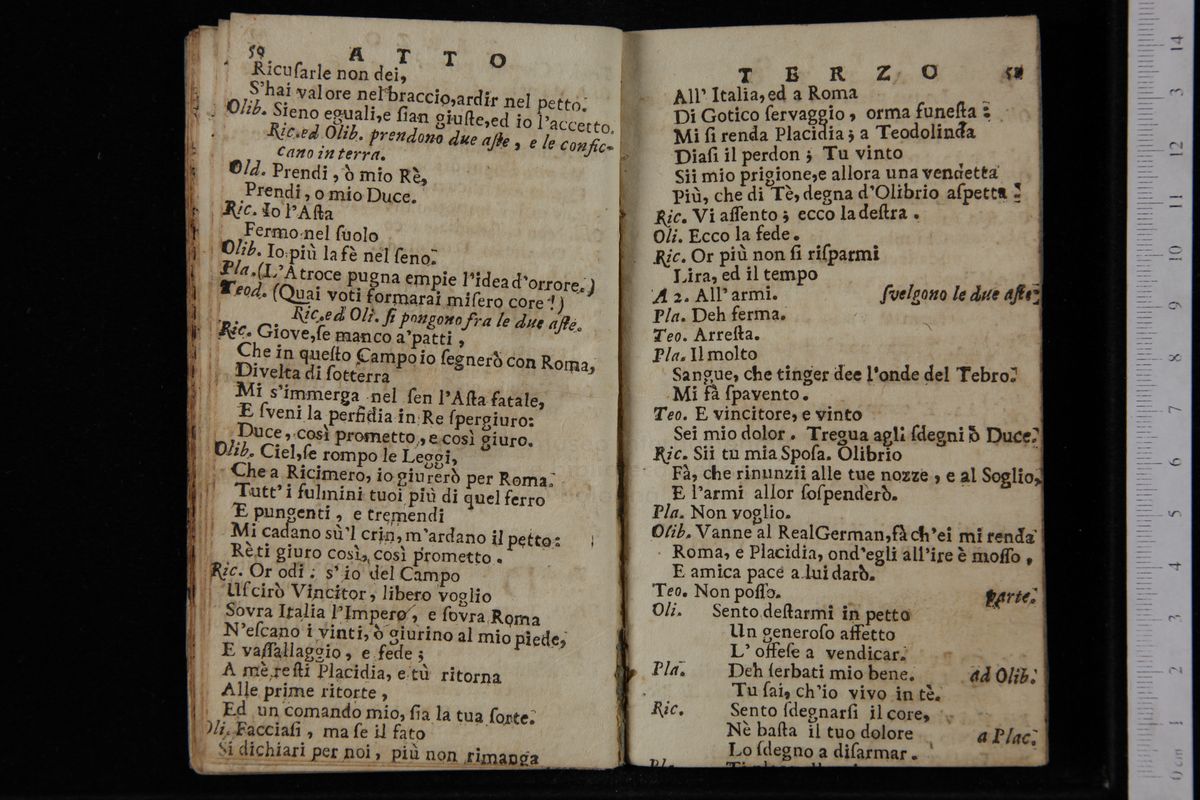 50 ATTO
Ricuſarle non dei,
S'hai valore nel braccio,ardir nel petto.
Olib. Sieno eguali,e ſian giuſte,ed io l'accetto.
Ric.ed Olib. prendono due aſte , e le confic-
cano in terra.
Old. Prendi , ò mio Rè,
Prendi , o mio Duce.
Ric. Io l'Aſta
Fermo nel ſuolo
Olib. Io più la fè nel ſeno.
Pla.(L'Atroce pugna empie l'idea d'orrore.)
Teod. (Quai voti formarai miſero core !)
Ric.ed Oli. ſi pongono fra le due aſte.
Ric. Giove,ſe manco a'patti ,
Che in queſto Campo io ſegnerò con Roma,
Divelta di ſotterra
Mi s'immerga nel ſen l'Aſta fatale,
E ſveni la perfidia in Re ſpergiuro:
Duce, così prometto, e così giuro.
Olib. Ciel,ſe rompo le Leggi,
Che a Ricimero, io giurerò per Roma.
Tutt' i fulmini tuoi più di quel ferro
E pungenti , e tremendi
Mi cadano sù'l crin, m'ardano il petto:
Rè ti giuro così, così prometto .
Ric. Or odi : s' io del Campo
Uſcirò Vincitor, libero voglio
Sovra Italia l'Impero , e ſovra Roma
N'eſcano i vinti, ò giurino al mio piede,
E vaſſallaggio , e fede ;
A mè reſti Placidia, e tù ritorna
Alle prime ritorte ,
Ed un comando mio, ſia la tua ſorte.
Oli. Facciaſi , ma ſe il fato
Si dichiari per noi , più non rimanga
TERZO
All' Italia, ed a Roma
Di Gotico ſervaggio , orma funeſta :
Mi ſi renda Placidia ; a Teodolinda
Diaſi il perdon ; Tu vinto
Sii mio prigione,e allora una vendetta
Più, che di Tè, degna d'Olibrio aſpetta .
Ric. Vi aſſento ; ecco la deſtra .
Oli. Ecco la fede .
Ric. Or più non ſi riſparmi
L'ira, ed il tempo
A 2. All' armi. ſvelgono le due aſte.
Pla. Deh ferma.
Teo. Arreſta.
Pla. Il molto
Sangue, che tinger dee l'onde del Tebro.
Mi fà ſpavento.
Teo. E vincitore, e vinto
Sei mio dolor . Tregua agli ſdegni ò Duce.
Ric. Sii tu mia Spoſa. Olibrio
Fà, che rinunzii alle tue nozze , e al Soglio,
E l'armi allor ſoſpenderò.
Pla. Non voglio.
Olib. Vanne al Real German,fà ch'ei mi renda
Roma, e Placidia, ond'egli all'ire è moſſo ,
E amica pace a lui darò.
Teo. Non poſſo. parte.
Oli. Sento deſtarmi in petto
Un generoſo affetto
L' offeſe a vendicar.
Pla. Deh ſerbati mio bene. ad Olib.
Tu ſai, ch'io vivo in tè.
Ric. Sento ſdegnarſi il core,
Nè baſta il tuo dolore a Plac.
Lo ſdegno a diſarmar .